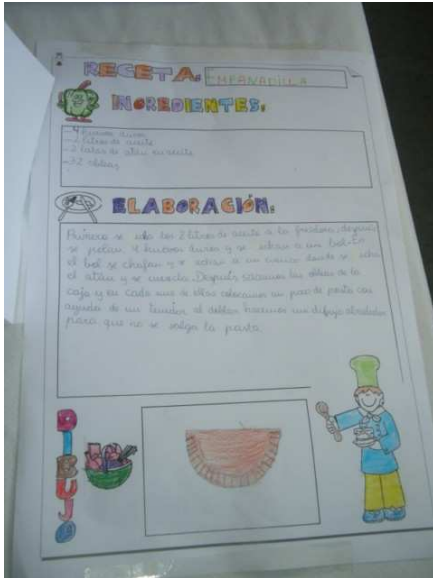 RECETA: EMPANADILLA
INGREDIENTES:
- 4 huevos duros
- 2 litros de aceite
- 2 latas de atún en aceite
- 32 obleas
ELABORACIÓN:
Primero se echa los 2 litros de aceite a la freidora, después
se pelan 4 huevos duros y se echan a un bol. En
el bol se chafan y se echan a un cuenco donde se echa
el atún y se mezcla. Después sacamos las obleas de la
caja y en cada una de ellas colocamos un poco de pasta con
ayuda de un tenedor al doblar hacemos un dibujo alrededor
para que no se salga la pasta.
DIBUJO